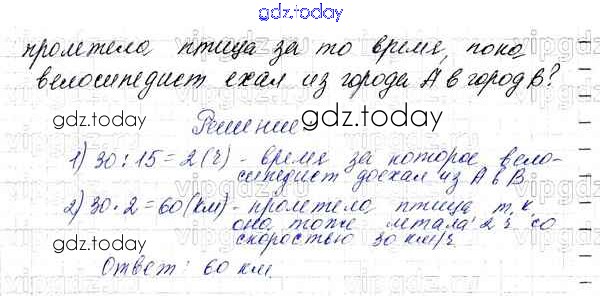 gdz.today
пролетела птица за то время, пока
велосипедист ехал из города А в город В?
gdz.today
Решение
1) 30 : 15 = 2 (ч) - время за которое вело-
сипедист доехал из А в В
2) 30 · 2 = 60 (км) - пролетела птица т.к.
она тоже летала 2 ч со
скоростью 30 км/ч
Ответ: 60 км
gdz.today